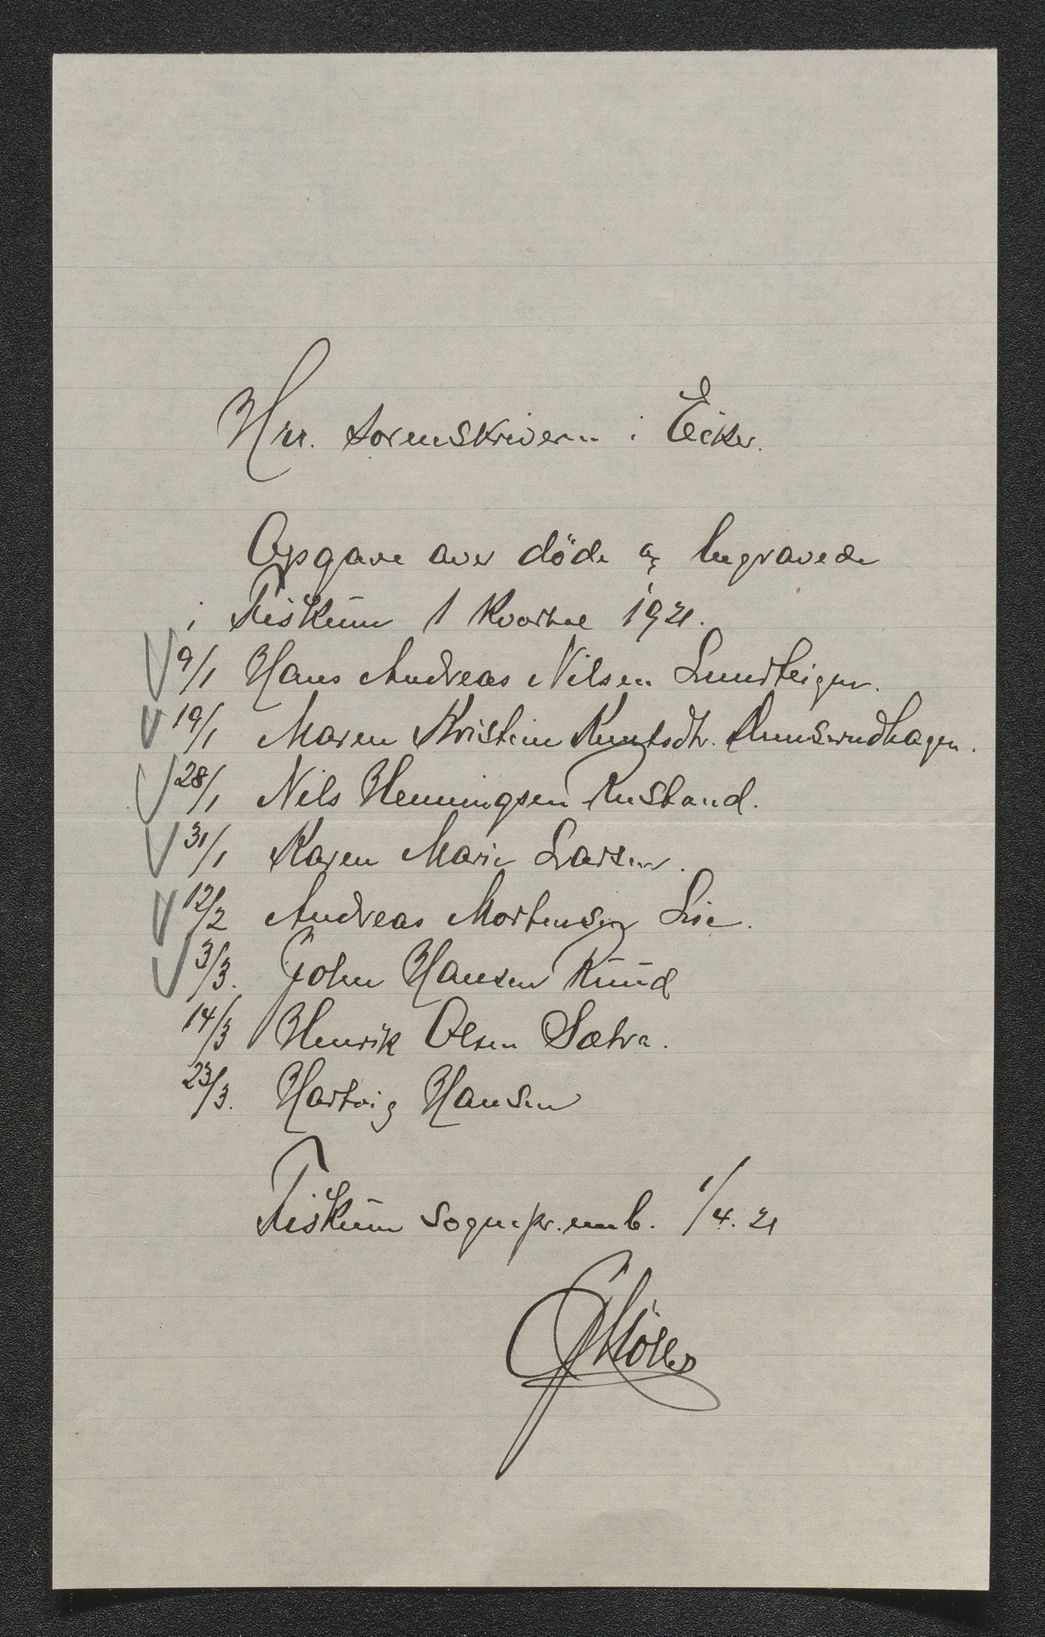 Hrr. sorenskriveren i Eiker.
Opgave over döde og begravede
i Fiskum 1 Kvartal 1921.
9/1 Hans Andreas Nilsen Lundteigen.
19/1 Maren Kristine Knutsdtr.
28/1 Nils Henningsen Rustand.
31/1 Karen Marie Larsen.
12/2 Andreas Mortensen Lie.
3/3. John Hansen Ruud
14/3 Henrik Olsen Sætra.
23/3. Hartvig Hansen
Fiskum sognepr.emb. 1/4. 21